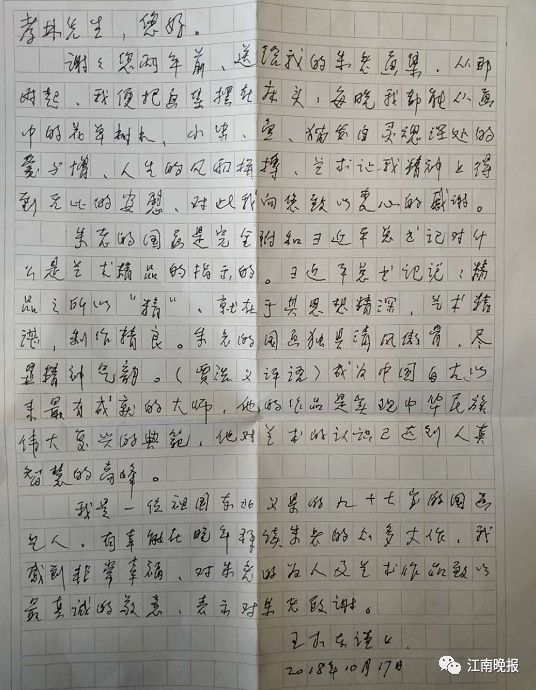 孝林先生，您好。
谢谢您两年前，送给我的朱老画集，从那
时起，我便把画集摆在床头，每晚我都能从画
中的花草树木，小虫、鱼、猫发自灵魂深处的
爱与憎、人生的风雨搏、艺术让我精神上得
到无比的安慰，对此我向您致以衷心的感谢。
朱老的国画是完全附和习近平总书记对什
么是艺术精品的指示的。习近平总书记说：精
品之所以“精”，就在于其思想精深，艺术精
湛，制作精良。朱老的国画独具清风傲骨，尽
显精神气韵。（贾浩义评语）成为中国自古以
来最有成就的大师，他的作品是实现中华民族
伟大复兴的典范，他对艺术的认识已达到人真
智慧的高峰。
我是一位祖国东北的九十七岁的国画
艺人，有幸能在晚年拜读朱老的众多大作，我
感到非常幸福，对朱老的为人及艺术作品致以
最真诚的敬意，表示对朱老的谢。
王东
2018年10月17日
江南晚报